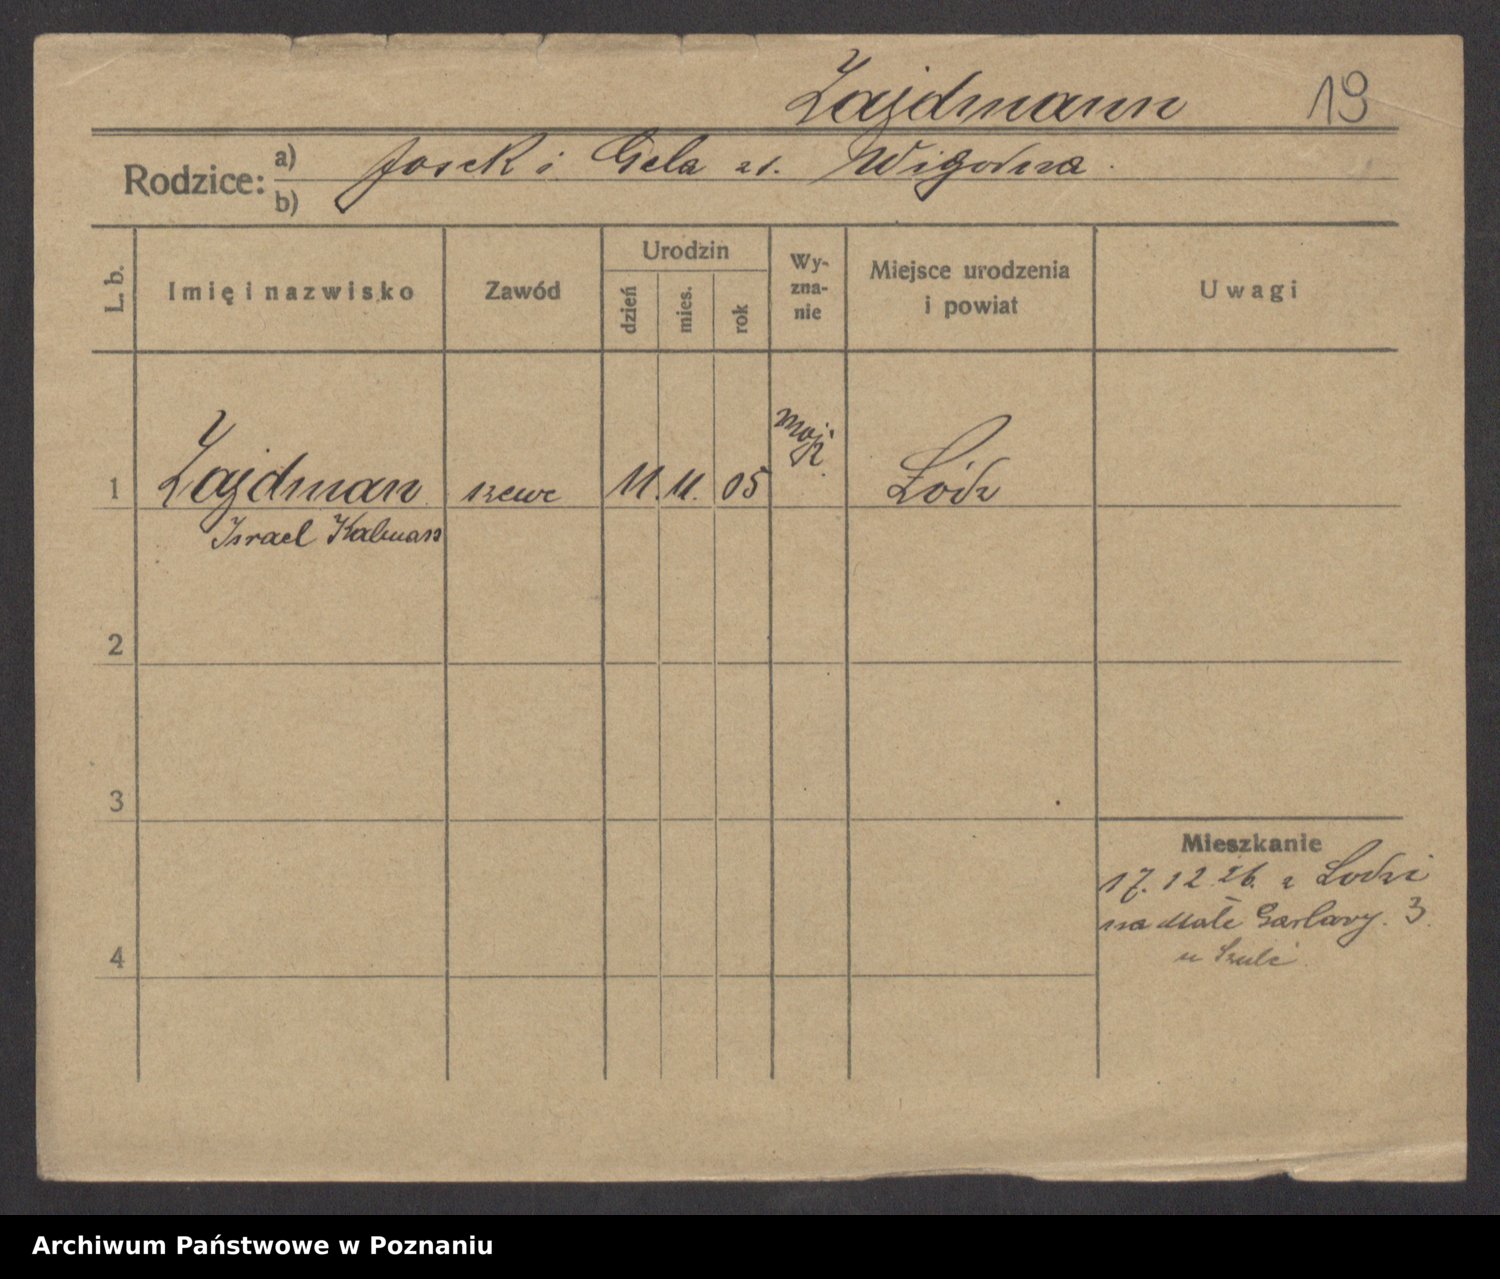 Zajdmann 19
Rodzice: a) Josek i Gela zd. Wigodna
b)
L. b. Imię i nazwisko Zawód Urodzin dzień mies. rok Wy-zna-nie Miejsce urodzenia i powiat Uwagi
1 Zajdman szewc 11. 11. 05 mojż. Łódź
Israel Kalman
2
3
Mieszkanie
17. 12. 26. z Łodzi
na Małe Garbary. 3.
4 u Szulc
Archiwum Państwowe w Poznaniu